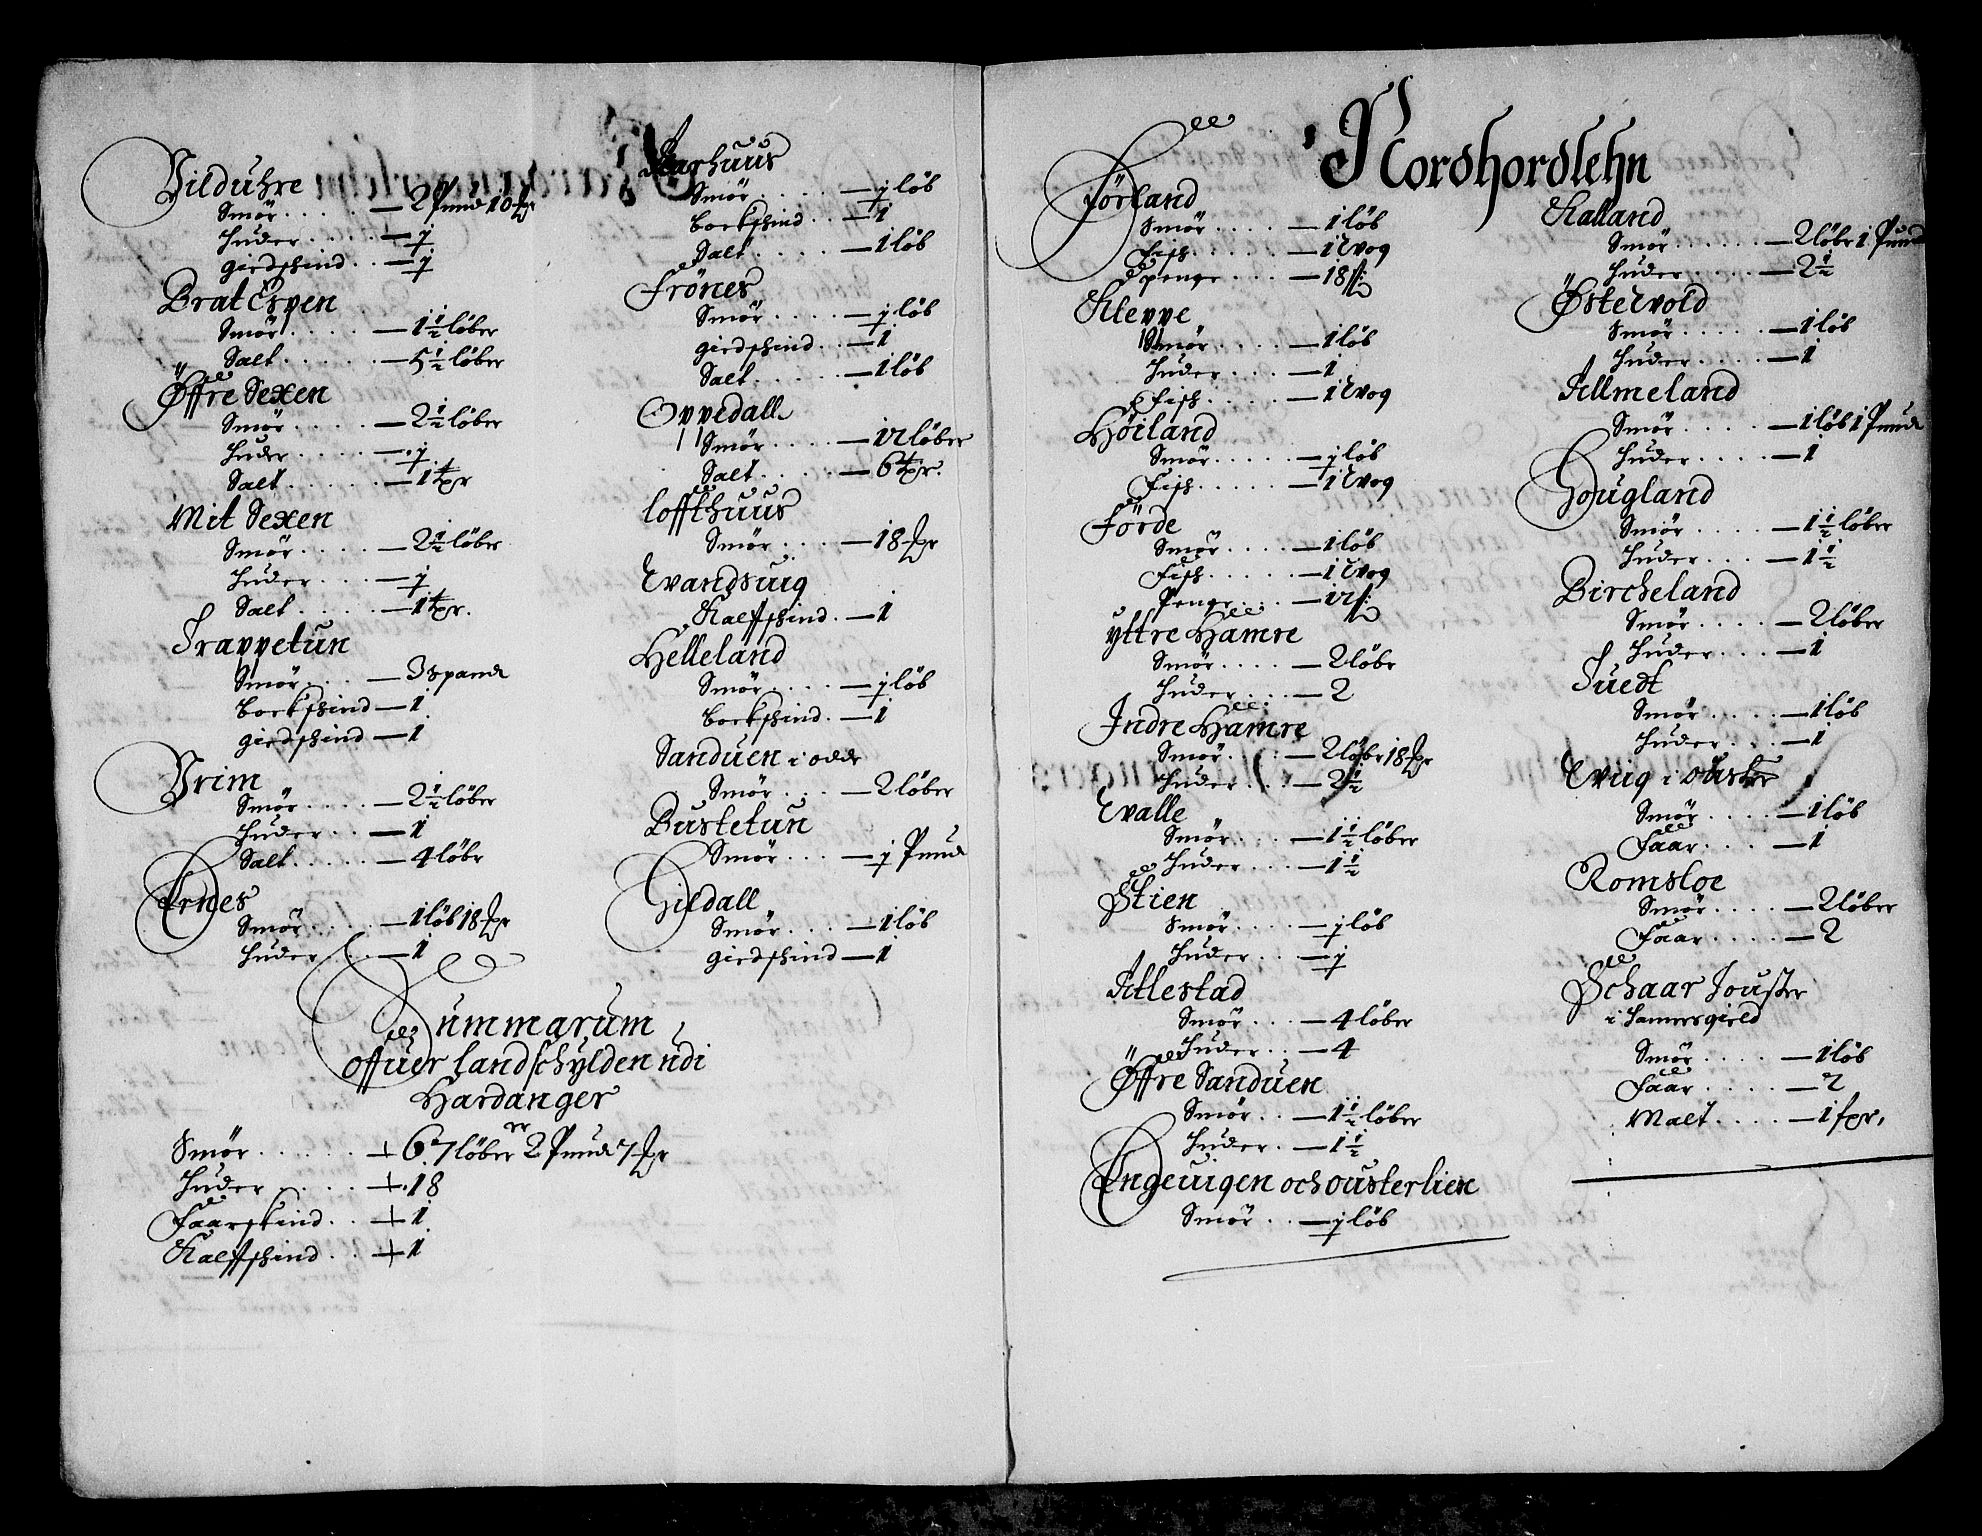 Vilduhre
Smör..... — 2 Pund 10 ꝑr
Huder..... — j
giedschind.. — j
Brat Espen
Smör..... — 1½ löber
Salt..... — 5½ löber
Öffre Sexen
Smör.... — 2½ löber
Huder.... — j
Salt..... — 1 tꝑr
Mit Sexen
Smör.... — 2½ löber
Huder... — j
Salt..... — 1 tꝑr.
Trappetun
Smör... — 3 spand
bockschind — 1
giedschind — 1
Vrim
Smör.... — 2½ löber
Huder.. — 1
Salt..... — 4 löbr
Ernes
Smör.... — 1 löb 18 ꝑr
Huder... — 1
Aarhuus
Smör..... — j löb
bockschind.. — 1
Salt..... — 1 löb
Frönes
Smör.... — j löb
giedschind.. — 1
Salt..... — 1 löb
Oppedall
Smör.... — 12 löber
Salt..... — 6 tꝑr.
loffthuus
Smör... — 18 ꝑr
Evandsuig
Kalffschind. — 1
Helleland
Smör.... — j löb
bockschind. — 1
Sanduen i odde
Smör... — 2 löber
Bustetun
Smör... — j Pund
Gildall
Smör... — 1 löb
giedschind — 1
Summarum
offuer landschylden udi
Hardanger
Smör...... + 67 löber 2 Pund 7 ꝑr
Huder..... + 18
Faarskind.. + 1
Kalffschind.. + 1
Nordhordlehn
Förland
Smör.... — 1 löb
Fisch..... — 1 Wog
penge... — 18 ß
Kleppe
Smör.... — 1 löb
Huder.... — 1
Fisch.... — 1 Wog
Höiland
Smör..... — j löb
Fisch..... — 1 Wog
Förde
Smör.... — 1 löb
Fisch..... — 1 Wog
Penge.... — 12 ß
yttre Hamre
Smör.... — 2 löbr
Huder... — 2
Indre Hamre
Smör... — 2 löbr 18 ꝑr
Huder... — 2½
Evalle
Smör... — 1½ löber
Huder... — 1½
Stien
Smör.... — j löb
Huder... — j
Allestad
Smör... — 4 löber
Huder.. — 4
Öffre Sanduen
Smör.. — 1½ löber
Huder. — 1½
Engeuigen och ousterlien
Smör.. — j löb
Kalland
Smör...... — 2 löbr 1 Pund
Huder.... — 2½
Östervold
Smör..... — 1 löb
Huder.... — 1
Allmeland
Smör..... — 1 löb 1 Pund
Huder.... — 1
Hougland
Smör.... — 1½ löber
Huder.... — 1½
Bircheland
Smör.... — 2 löber
Huder... — 1
Tuedt
Smör.... — 1 löb
Huder... — 1
Evuig i ouster
Smör.... — 1 löb
Faar... — 1
Romsloe
Smör.... — 2 löber
Faar.... — 2
Schaar Houster
i Hamersgield
Smör.... — 1 löb
Faar..... — 2
Malt.... — 1 ꝑr.